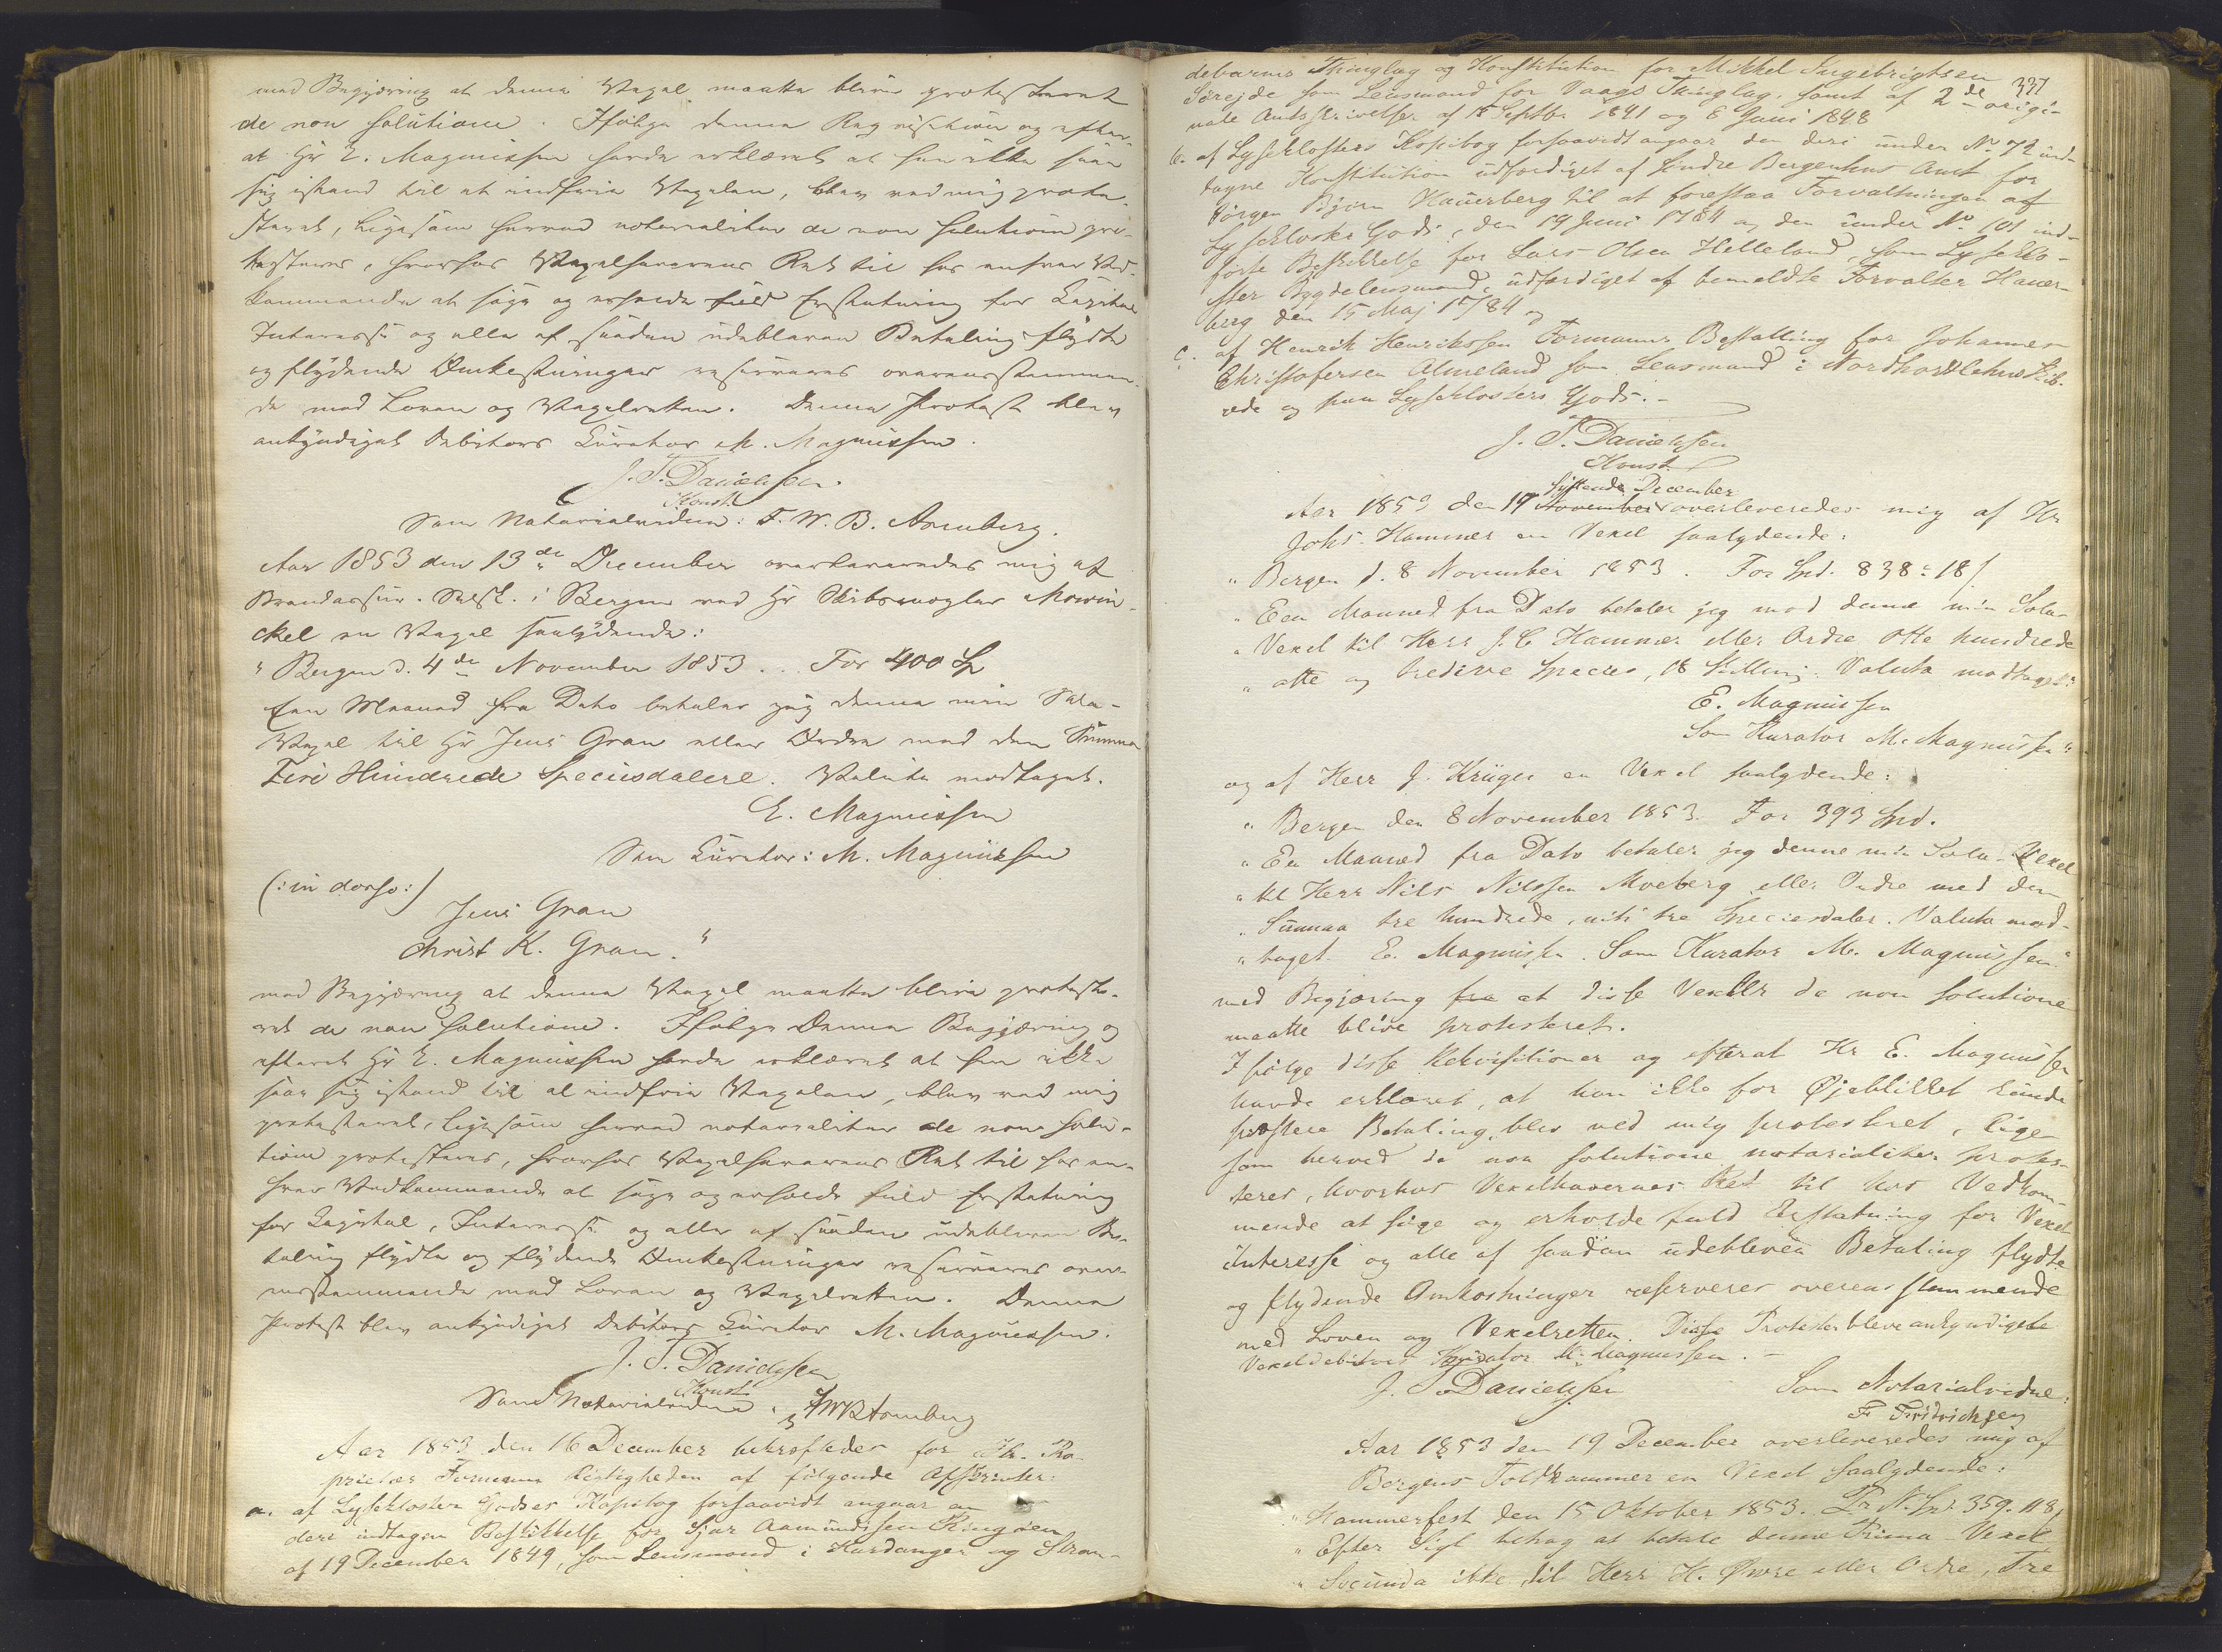 med Begjæring at denne Vexel maatte blive protesteret
de non solutione. Ifølge denne Reqvisition og efter-
at Hr E. Magnussen havde erklæret at han ikke saae
sig istand til at indfrie Vexelen, blev ved mig prote-
steret, ligesom herved notarialiter de non solutione pro-
testeres, hvorhos Vexelhaverens Ret til hos enhver Ved-
kommende at søge og erholde fuld Erstatning for Capital
Interesse og alle af saadan udebleven Betaling flydte
og flydende Omkostninger reserveres overensstemmen-
de med Loven og Vexelretten. Denne Protest blev
ankyndiget Debitors Curator M. Magnussen.
J. T. Danielssen.
Konst.
Som Notarialvidne: F. W. B. Aremberg.
Aar 1853 den 13de December overleveredes mig af
i Bergen ved Hr Mowin-
ckel en Vexel saalydende:
" Bergen d. 4de November 1853. . For 400 Sp
Een Maaned fra Dato betaler jeg denne min Sola-
Vexel til Hr Jens Gran eller Ordre med den Summa
Fire Hundrede Speciesdalere. Valuta modtaget.
E. Magnussen
Som Curator: M. Magnussen
(: in dorso :)
Jens Gran
Christ K. Gran. "
med Begjæring at denne Vexel maatte blive proteste-
ret de non solutione. Ifølge denne Begjæring og
efterat Hr E. Magnussen havde erklæret at han ikke
saae sig istand til at indfrie Vexelen, blev ved mig
protesteret, ligesom herved notarialiter de non solu-
tione protesteres, hvorhos Vexelhaverens Ret til hos en-
hver Vedkommende at søge og erholde fuld Erstatning
for Capital, Interesse og alle af saadan udebleven Be-
taling flydte og flydende Omkostninger reserveres over-
ensstemmende med Loven og Vexelretten. Denne
Protest blev ankyndiget Debitors Curator M. Magnussen.
J. T. Danielssen
Konst.
Som Notarialvidne: FWBAremberg
Aar 1853 den 16 December bekræftedes for Hr. Pro-
prietær Formann Rigtigheden af følgende Afskrifter:
a. af Lyseklosters Godses Kopibog forsaavidt angaar en
deri indtagen Beskikkelse for Sjur Aamundssen Ringøen
af 19 December 1849, som Lensmand i Hardanger og Stran-
337
debarms Thinglag og Konstitution for Mikkel Ingebrigtsen
Sørejde som Lensmand for Vaags Thinglag, samt af 2de origi-
nale Amtsskrivelser af 18 Septbr 1841 og 6 Juni 1848
b. af Lyseklosters Kopibog forsaavidt angaar den deri under No 72 ind-
tagne Konstitution udfærdiget af Søndre Bergenhus Amt for
Jörgen Bjørn Hauerberg til at forestaae Forvaltningen af
Lysekloster Gods, den 19 Juni 1784 og den under No 101 ind-
førte Beskikkelse for Lars Olsen Helleland, som Lyseklo-
ster Bygdelensmand, udfærdiget af bemeldte Forvalter Hauer-
berg den 15 Maj 1784 og
c. af Henrik Henrikssen Formanns Bestalling for Johannes
Christofersen Almeland som Lensmand i Nordhordlehns Skib-
rede og paa Lyseklosters Gods.-
J. T. Danielssen
Konst.
syttende December
Aar 1853 den 19 November overleveredes mig af Hr
Johs. Hammer en Vexel saalydende:
" Bergen d. 8 November 1853. For Spd. 838: 18 s
" Een Maaned fra Dato betaler jeg mod denne min Sola-
" Vexel til Herr J. C Hammer eller Ordre Otte hundrede
" otte og tredive Species, 18 Skilling. Valuta modtaget.
E. Magnussen
Som Kurator M. Magnussen "
og af Herr J. Krüger en Vexel saalydende:
" Bergen den 8 November 1853. For 393 Spd.
" En Maaned fra Dato betaler jeg denne min Sola-Vexel
" til Herr Nils Nilssen Moeberg eller Ordre med den
" Summa tre hundrede, niti tre Speciesdaler. Valuta mod-
" taget. E. Magnussen. Som Kurator M. Magnussen."
med Begjæring fra at disse Vexler de non solutione
maatte blive protesteret.
Ifølge disse Rekvisitioner og efterat Hr E. Magnussen
havde erklæret, at han ikke for Øjeblikket kunde
præstere Betaling, blev ved mig protesteret, lige-
som herved de non solutione notarialiter protes-
teres, hvorhos Vexelhavernes Ret til hos Vedkom-
mende at søge og erholde fuld Erstatning for Vexel
Interesse og alle af saadan udebleven Betaling flydte
og flydende Omkostninger reserveres overensstemmende
med Loven og Vexelretten. Disse Protester bleve ankyndigede
Vexeldebitors Kurator M. Magnussen.-
J. T. Danielssen
Som Notarialvidne:
F Fridrichsen
Aar 1853 den 19 December overleveredes mig af
Bergens Toldkammer en Vexel saalydende:
" Hammerfest den 15 Oktober 1853. Pr N. Spd. 359. 118 s
" Efter Sigt behag at betale denne Prima-Vexel
" Secunda ikke, til Herr H. Øwre eller Ordre, Tre